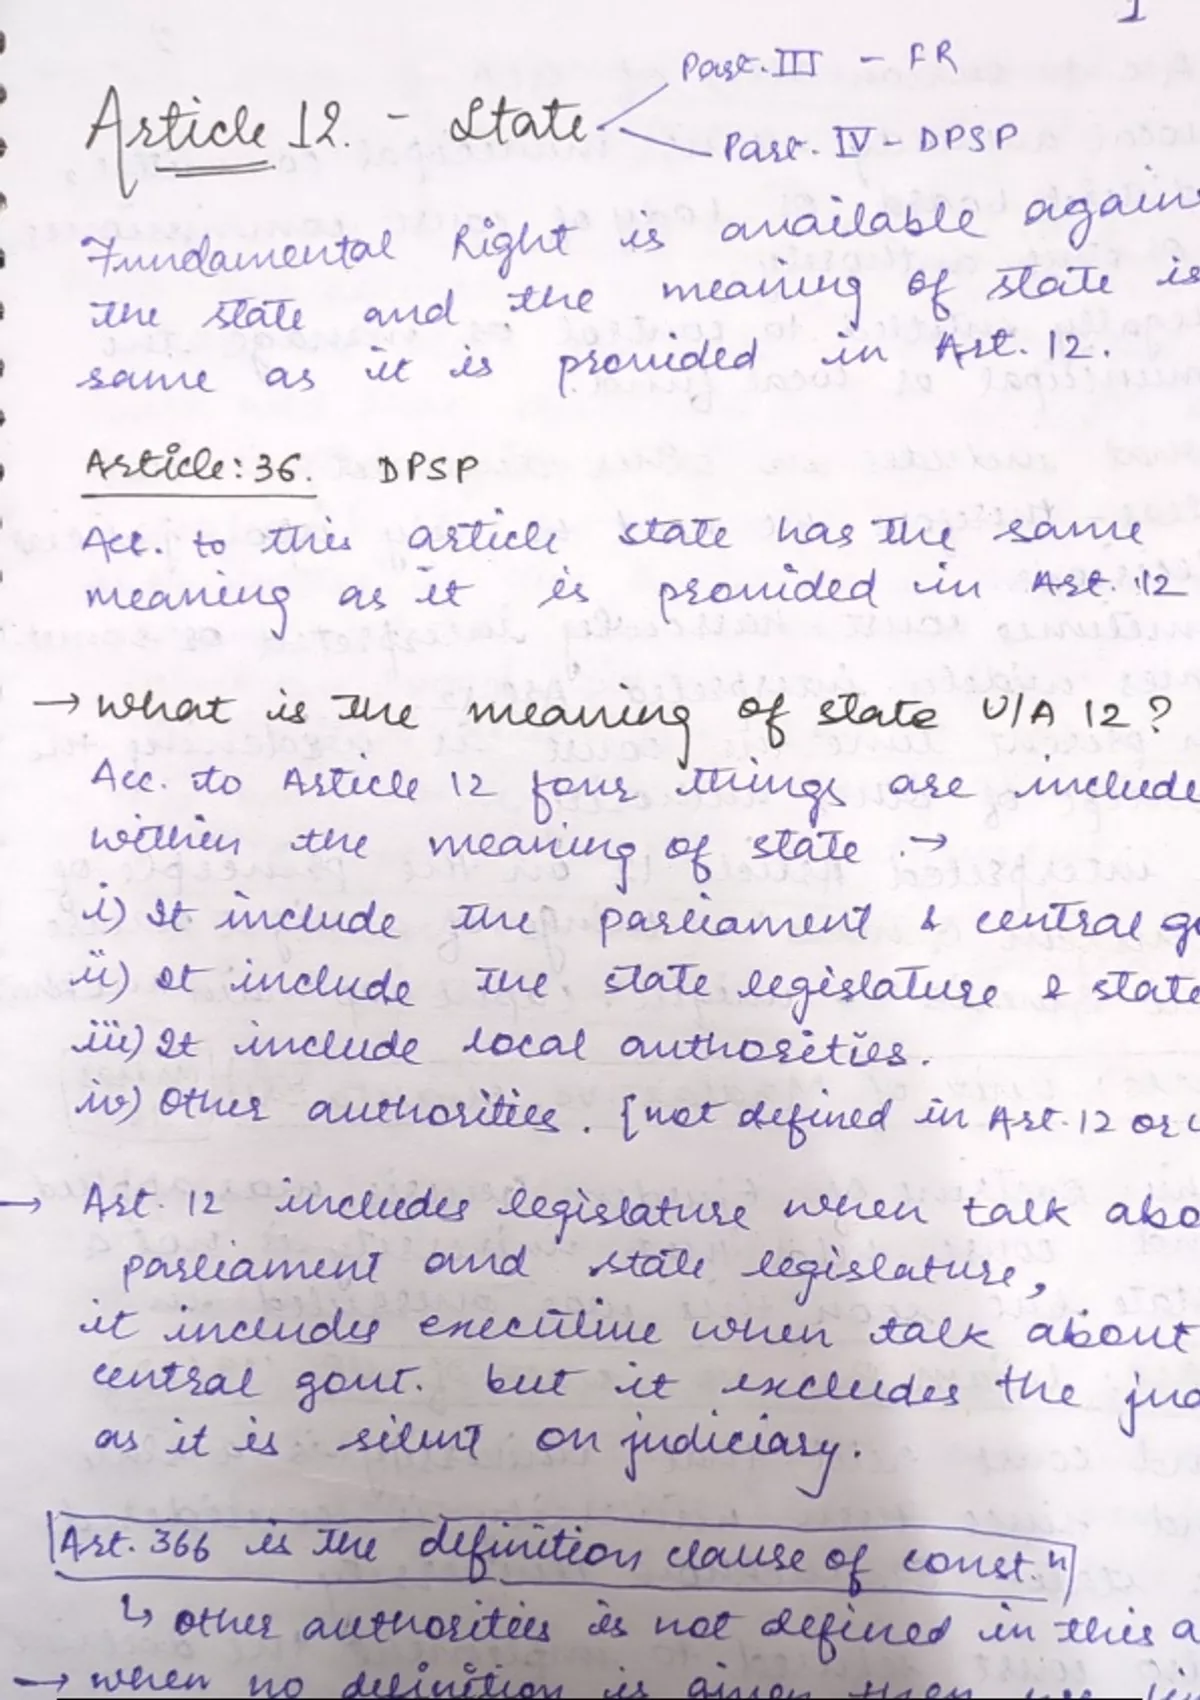 1
Part. III - FR
Article 12. - State
Part. IV - DPSP
Fundamental Right is available agains
the state and the meaning of state is
same as it is provided in Art. 12.
Article: 36. DPSP
Acc. to this article state has the same
meaning as it is provided in Art. 12
→ What is the meaning of state U/A 12?
Acc. to Article 12 four things are include
within the meaning of state :→
i) It include the parliament & central go
ii) It include the state legislature & state
iii) It include local authorities.
iv) Other authorities. [not defined in Art. 12 or
→ Art. 12 includes legislature when talk abo
parliament and state legislature,
it includes executive when talk about
central govt. but it excludes the jud
as it is silent on judiciary.
Art. 366 is the definition clause of const.n
↳ other authorities is not defined in this a
→ when no definition is given then